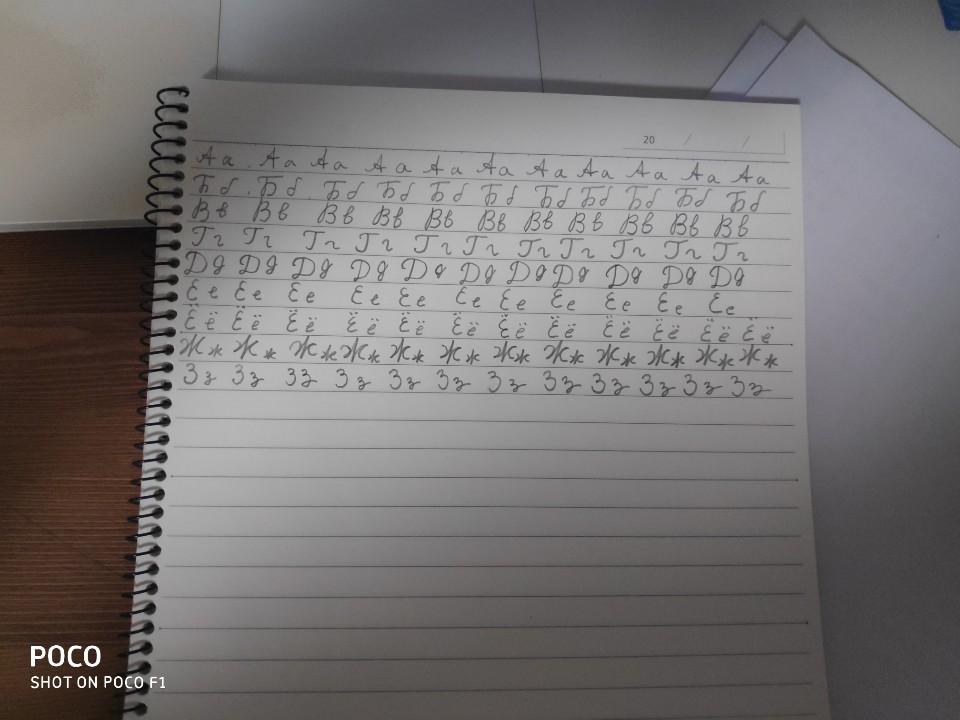 20 / /
Аа Аа Аа Аа Аа Аа Аа Аа Аа Аа Аа
Бб Бб Бб Бб Бб Бб Бб Бб Бб Бб Бб
Вв Вв Вв Вв Вв Вв Вв Вв Вв Вв Вв
Гг Гг Гг Гг Гг Гг Гг Гг Гг Гг Гг
Дд Дд Дд Дд Дд Дд Дд Дд Дд Дд Дд
Ее Ее Ее Ее Ее Ее Ее Ее Ее Ее Ее
Ёё Ёё Ёё Ёё Ёё Ёё Ёё Ёё Ёё Ёё Ёё Ёё
Жж Жж Жж Жж Жж Жж Жж Жж Жж Жж Жж Жж
Зз Зз Зз Зз Зз Зз Зз Зз Зз Зз Зз Зз
POCO
SHOT ON POCO F1